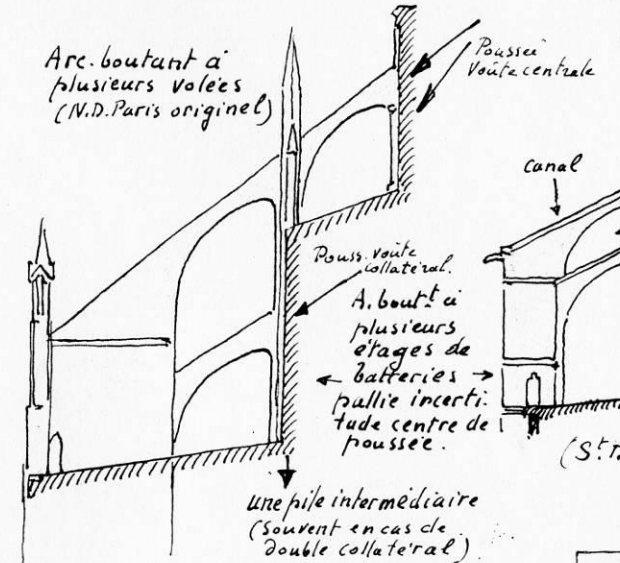 Arc-boutant à
plusieurs volées
(N.D. Paris originel)
Poussée
Voûte centrale
canal
Pouss. voûte
collatéral.
A. bout.t à
plusieurs
étages de
batteries
pallie incerti-
tude centre de
poussée.
(St.
une pile intermédiaire
(Souvent en cas de
double collatéral)